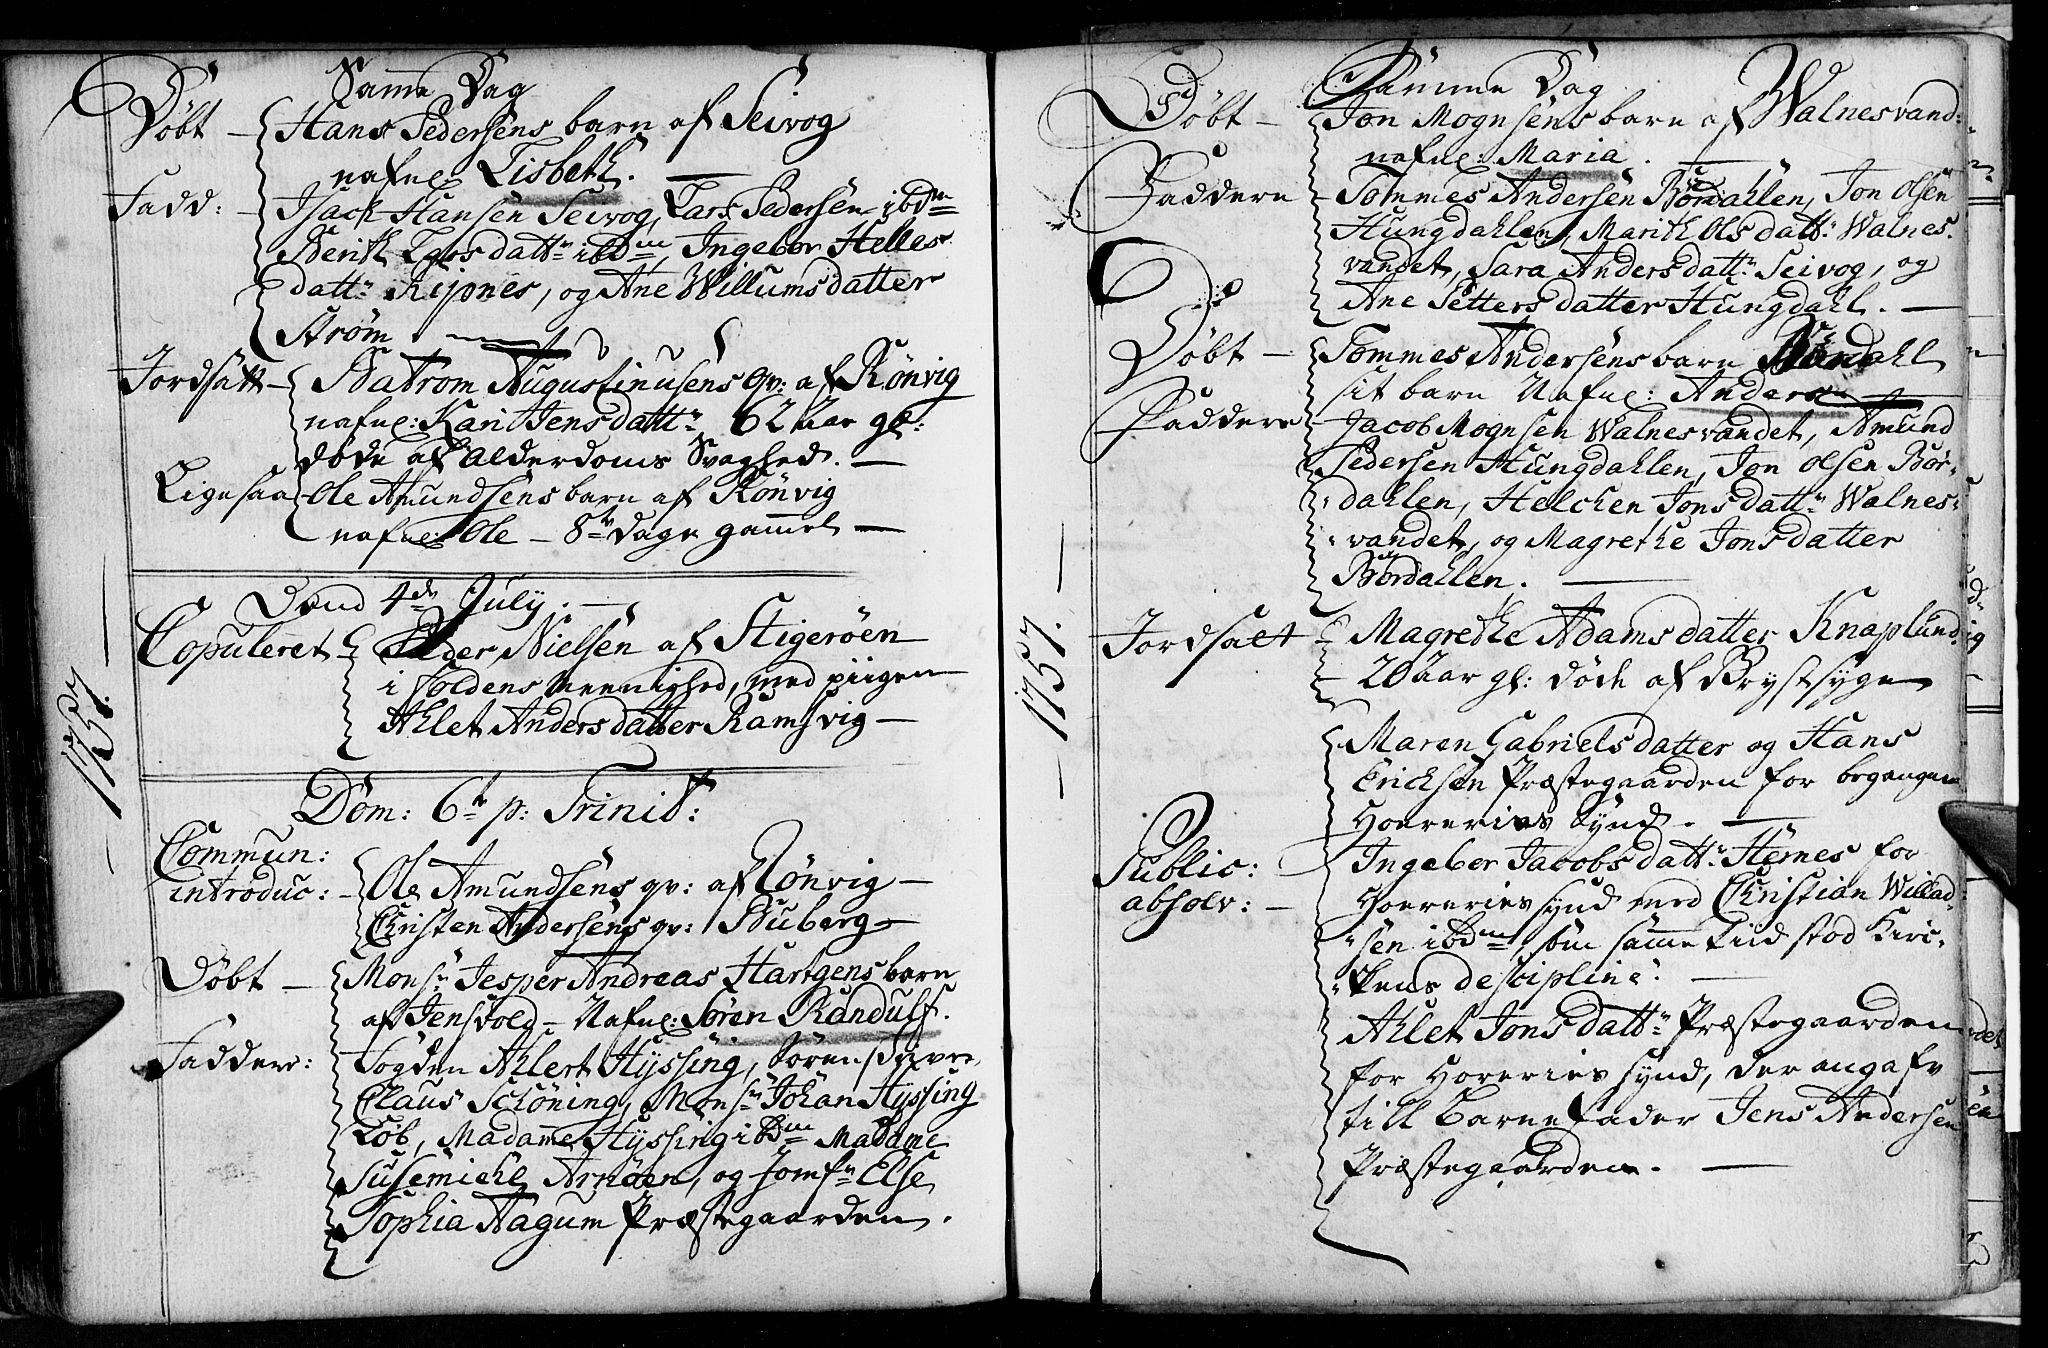 Samme Dag
Døbt – Hans Pedersens barn af Seivog
nafnl: Lisbeth. –
Fadd: – Isach Hansen Seivog, Lars Pedersen ibdm
Berith Larsdattr ibdm, Ingebor Helles
dattr Kipnes, og Ane Willumsdatter
Strøm. –
Jordsatt – Batrom Augustinusens qv: af Rønvig
nafnl: Kari Jensdattr 62 Aar gl:
døde af Alderdoms Svaghed. –
Ligesaa – Ole Amundsens barn af Rønvig
nafnl: Ole – 8te Dage gammel –
Dend 4de July. –
Copuleret – Peder Nielsen af Stigerøen
i foldens Meenighed, med piigen
Ahlet Andersdatter Ramsvig –
1757.
Dom: 6te p: Trinit:
Commun:
introduc: – Ole Amundsens qv: af Rønvig –
Christen Andersens qv: Stuberg –
Døbt – Monsr Jesper Andreas Hartgens barn
af Jensvold – Nafnl: Søren Randulf.
Faddere: – Fogden Ahlert Hyssing, Sorenskriver
Claus Schöning, Monsr Johan Hyssing
Løb, Madame Hyssing ibdm Madame
Susemichl Arnøen, og Jomfr Else
Sophia Aagum Præstegaarden.
Samme Dag
Døbt – Jon Mognsens barn af Walnesvand:
nafnl: Maria. –
Faddere – Tommes Andersen Børdahlen, Jon Olsen
Hungdahlen, Marith Olsdattr Walnes.
vandet, Sara Andersdattr Seivog, og
Ane Pettersdatter Hungdahl. –
Døbt – Tommes Andersens barn Børdahl
sit barn Nafnl: Anders –
Faddere – Jacob Mognsen Walnesvandet, Amund
Pedersen Hungdahlen, Jon Olsen Bør-
dahlen, Helchen Jonsdattr Walnes-
vandet, og Magrethe Jonsdatter
Børdahlen. –
1757. –
Jordsatt – Magrethe Adamsdatter Knaplund
– 20 Aar gl: døde af Brystsyge
Maren Gabrielsdatter og Hans
Ericksen Præstegaarden for begangen
Horeries Synd. –
Public:
absolv: – Ingeber Jacobsdattr Hernes for
Horeries synd med Christian Willad-
sen ibdm, som samme tiid stod Kirc-
kens desciplin: –
Ahlet Jonsdattr Præstegaarden
for Horeries synd, der angafv
till Barnefader Jens Andersen
Præstegaarden. –